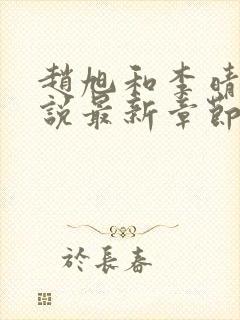 趙旭和李晴
說最新章節
於長春